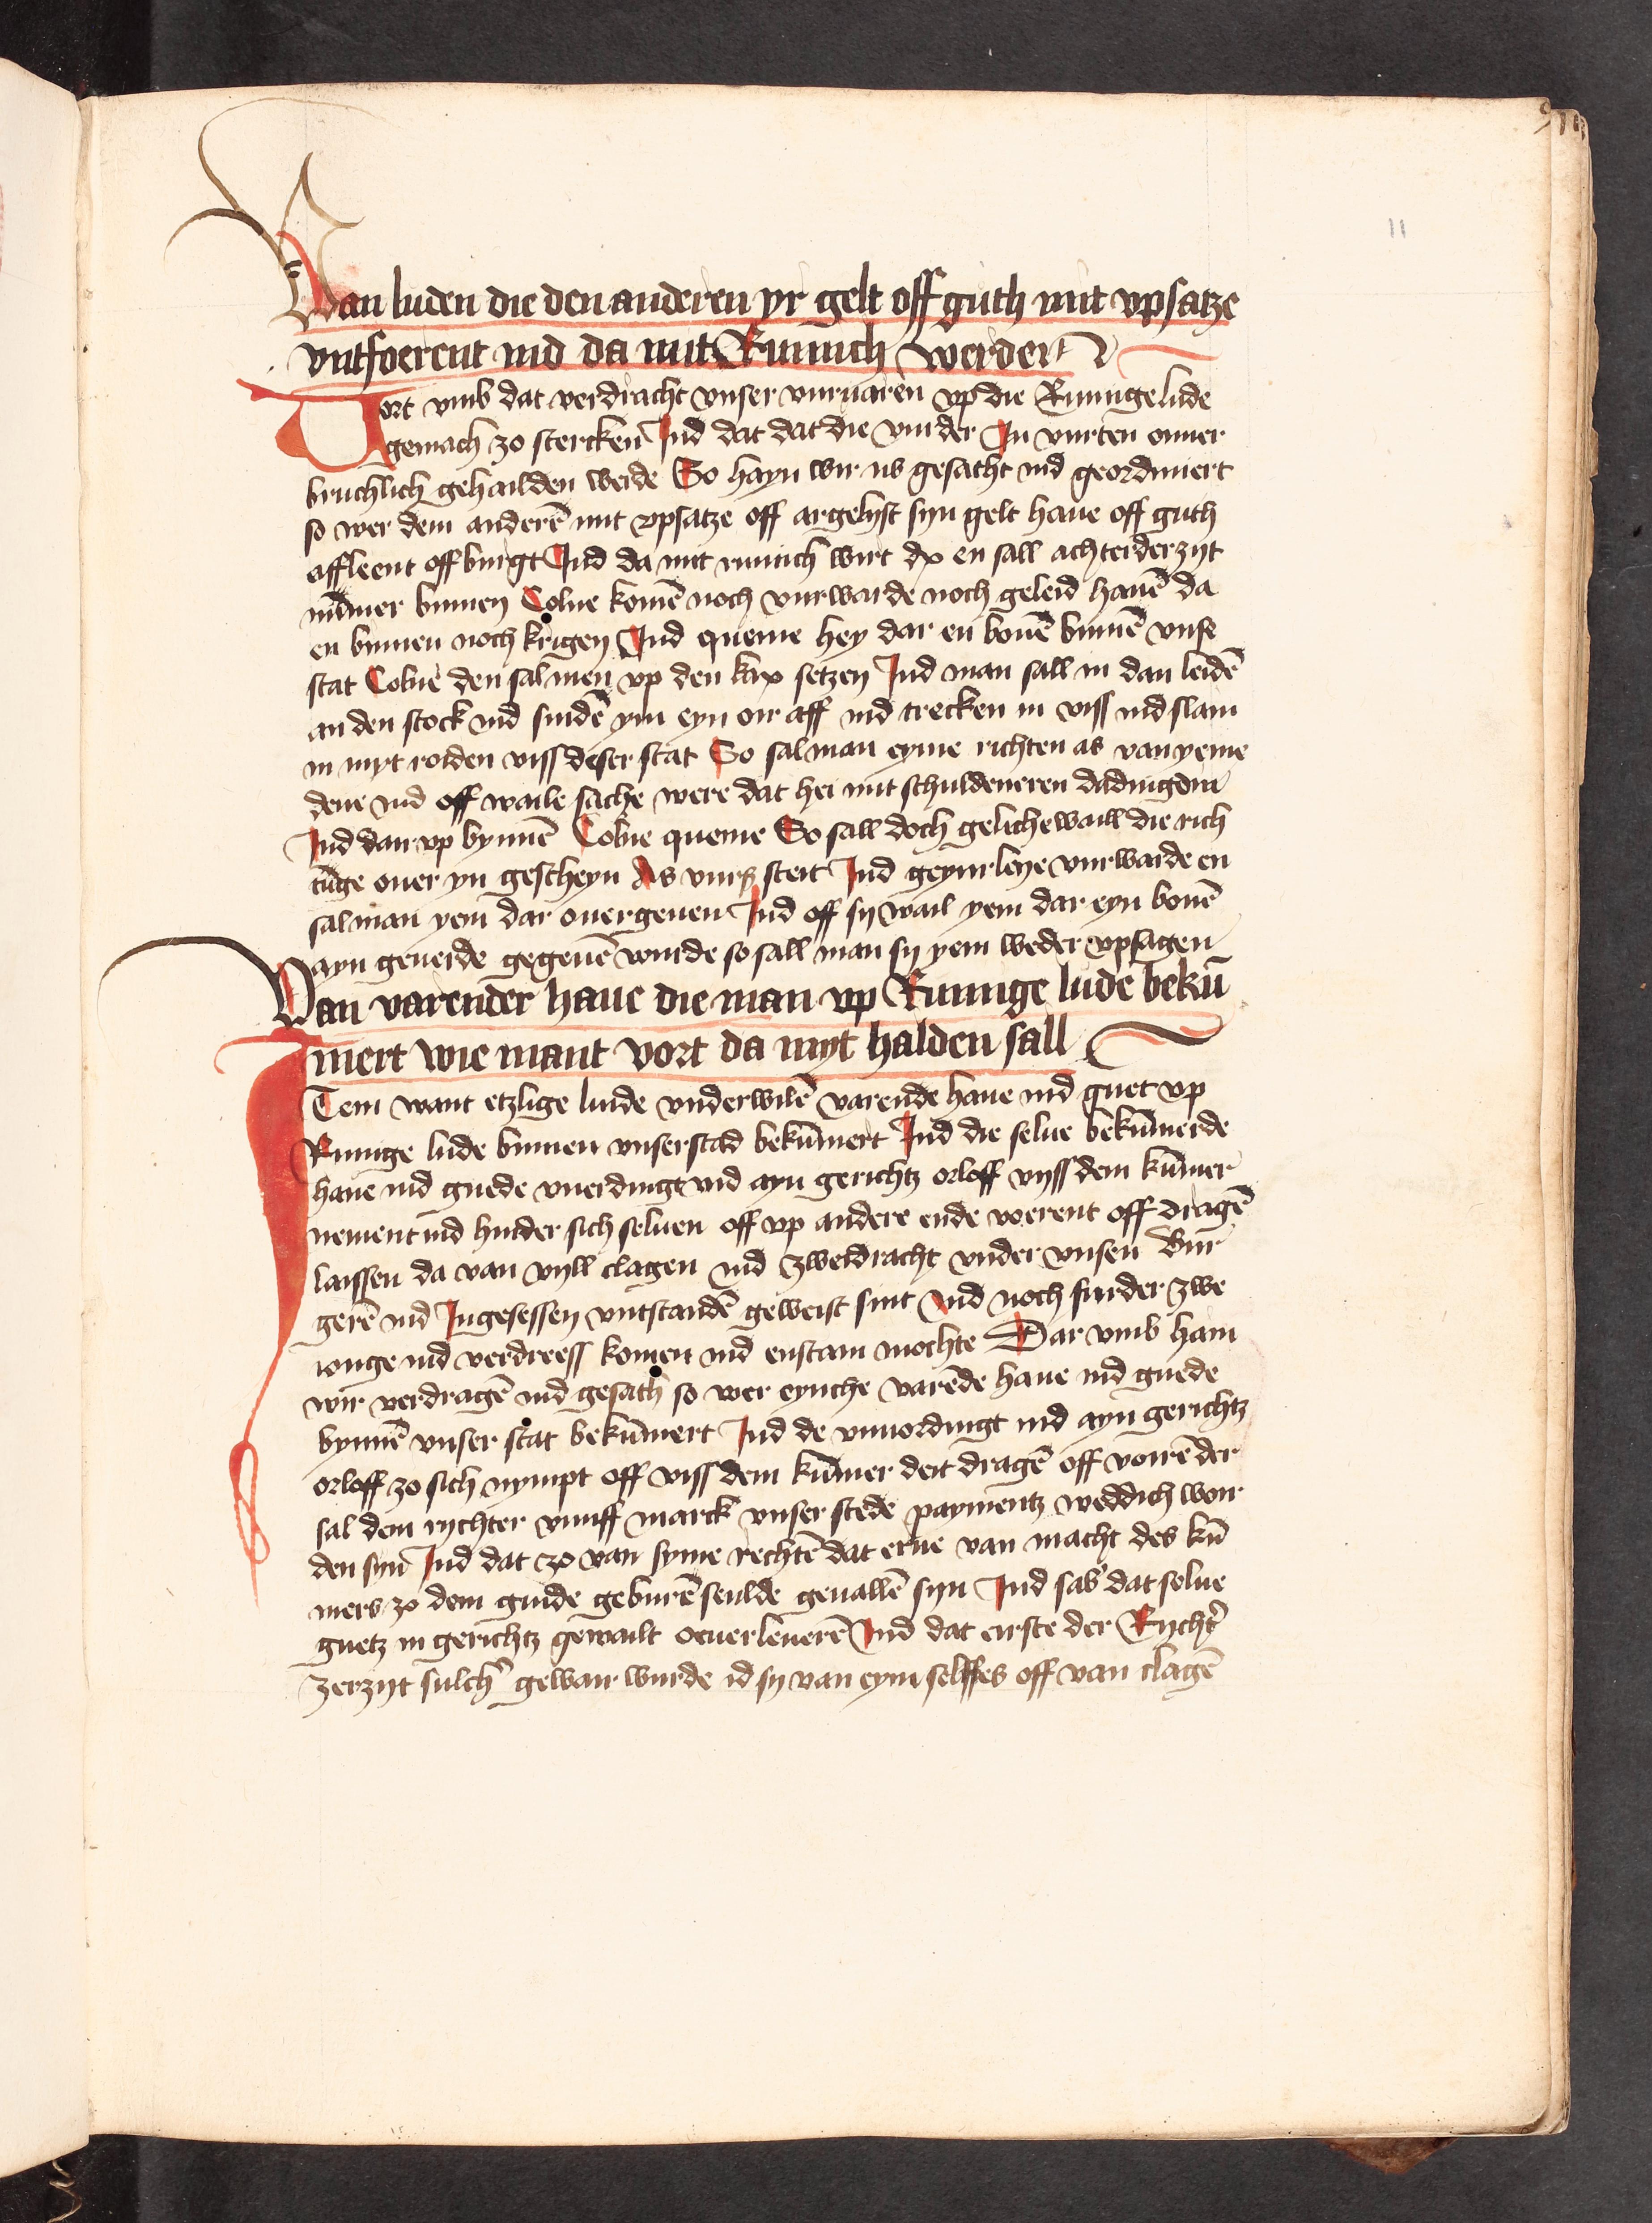 11
Van luden die den anderen yr gelt off guth mit vpsatze
vntfoerent ind da mit Rumich werden
Vort vmb dat verdracht vnser vuruaren vp die Rumige lude
gemach zo stercken Ind dat dat die vurder In vurten onuer
bruchlich gehailden werde So hayn wir vs gesatht ind geordiniert
so wer dem anderē mit vpsatze off argelyst syn gelt haue off guth
affleent off burgt Ind da mit rumich wirt dx en sall achterderzyt
nūmer bynnen Colne komē noch vurwarde noch geleid hauē da
en bynnen noch krigen Ind queme hey dar en bouē bynnē vnse
stat Colne den sal men vp den kax setzen Ind man sall in dan leidē
an den stock ind sindē ym eyn oir aff ind trecken in viss ind slain
in myt roiden viss deser stat So sal man eyme richten as van yeme
dene ind off waile sache were dat hei mit schuldeneren dadingden
Ind dan vp bynnē Colne queme So sall doch geliche waill die rich
tūge ouer yn gescheyn As vurß steit Ind geynrleye vurwarde en
sal man yem dar ouergeuen Ind off sy wail yem dar eyn bouē
ayn geuerde gegeuē wurde so sall man sy yem weder vpsagen
Van varender haue die man vp Rumige lude bekū
mert wie mant vort da myt halden sall
ITem want etzlige lude vnderwilē varende haue ind guet vp
Rumige lude bynnen vnserstad bekūmert Ind die selue bekūmerde
haue ind guede vnerdingt ind ayn gerichtz orloff vyss dem kūmer
nement ind hinder sich seluen off vp andere ende voerent off dragē
laissen da van vyll clagen ind zweidracht vnder vnsen Bur
gerē ind Ingesessen vntstandē geweist sint Ind noch furder zwe
ionge ind verdreess komen ind enstain mochte Dar vmb hain
wir verdragē ind gesath so wer eynche varēde haue ind guede
bynnē vnser stat bekūmert Ind de vnuordingt ind ayn gerichtz
orloff zo sich nympt off viss dem kūmer deit dragē off voirē der
sal dem rychter vunff marck vnser stede paymentz weddich wor
den syn Ind dat zo van syme rechtē dat erue van macht des kū
mers zo dem guide geburē seulde geuallē syn Ind sall dat selue
guetz in gerichtz gewailt oeuerleuerē Ind dat eirste der Rychtˀ
zerzyt sulchˀ gewair wurde id sy van eym selffes off van clagē